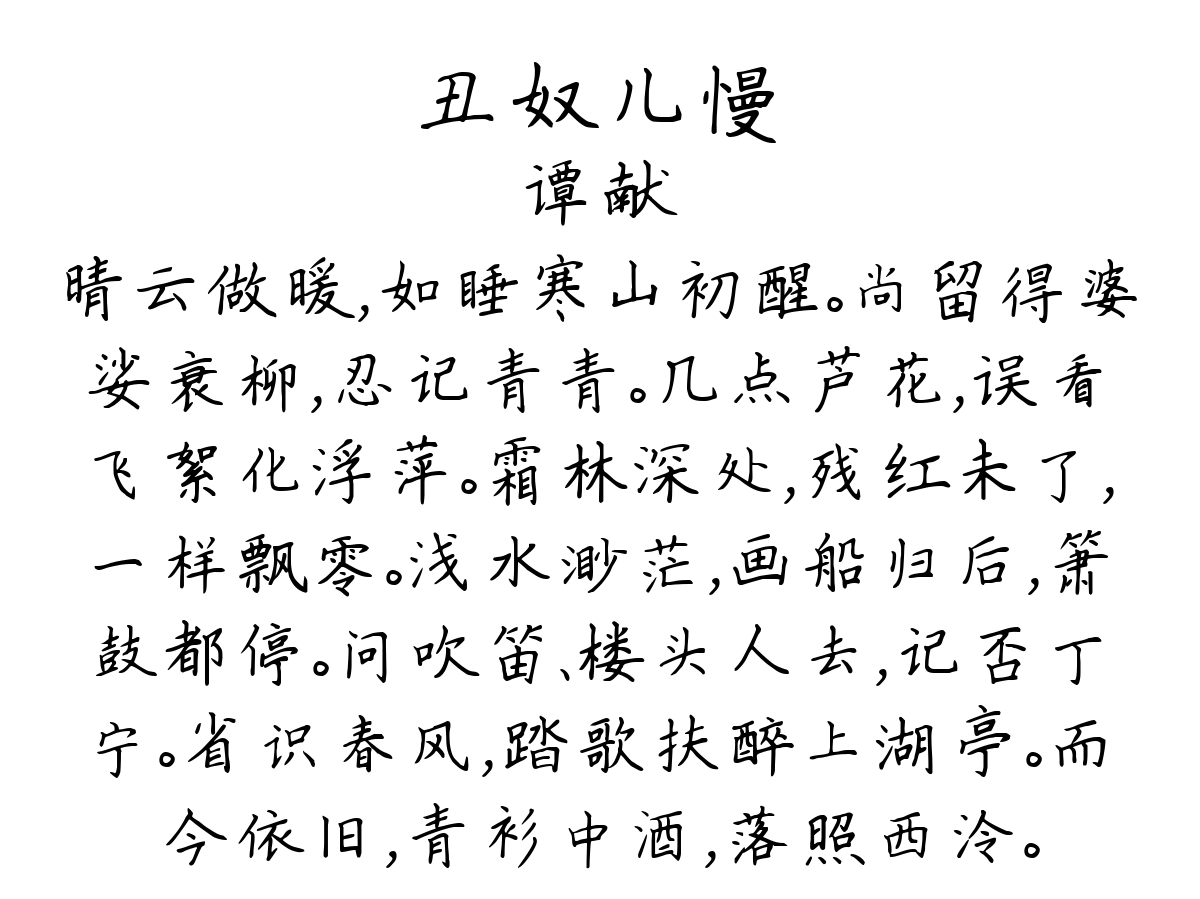 丑奴儿慢
谭献
晴云做暖,如睡寒山初醒。尚留得婆
娑衰柳,忍记青青。几点芦花,误看
飞絮化浮萍。霜林深处,残红未了,
一样飘零。浅水渺茫,画船归后,箫
鼓都停。问吹笛、楼头人去,记否丁
宁。省识春风,踏歌扶醉上湖亭。而
今依旧,青衫中酒,落照西泠。